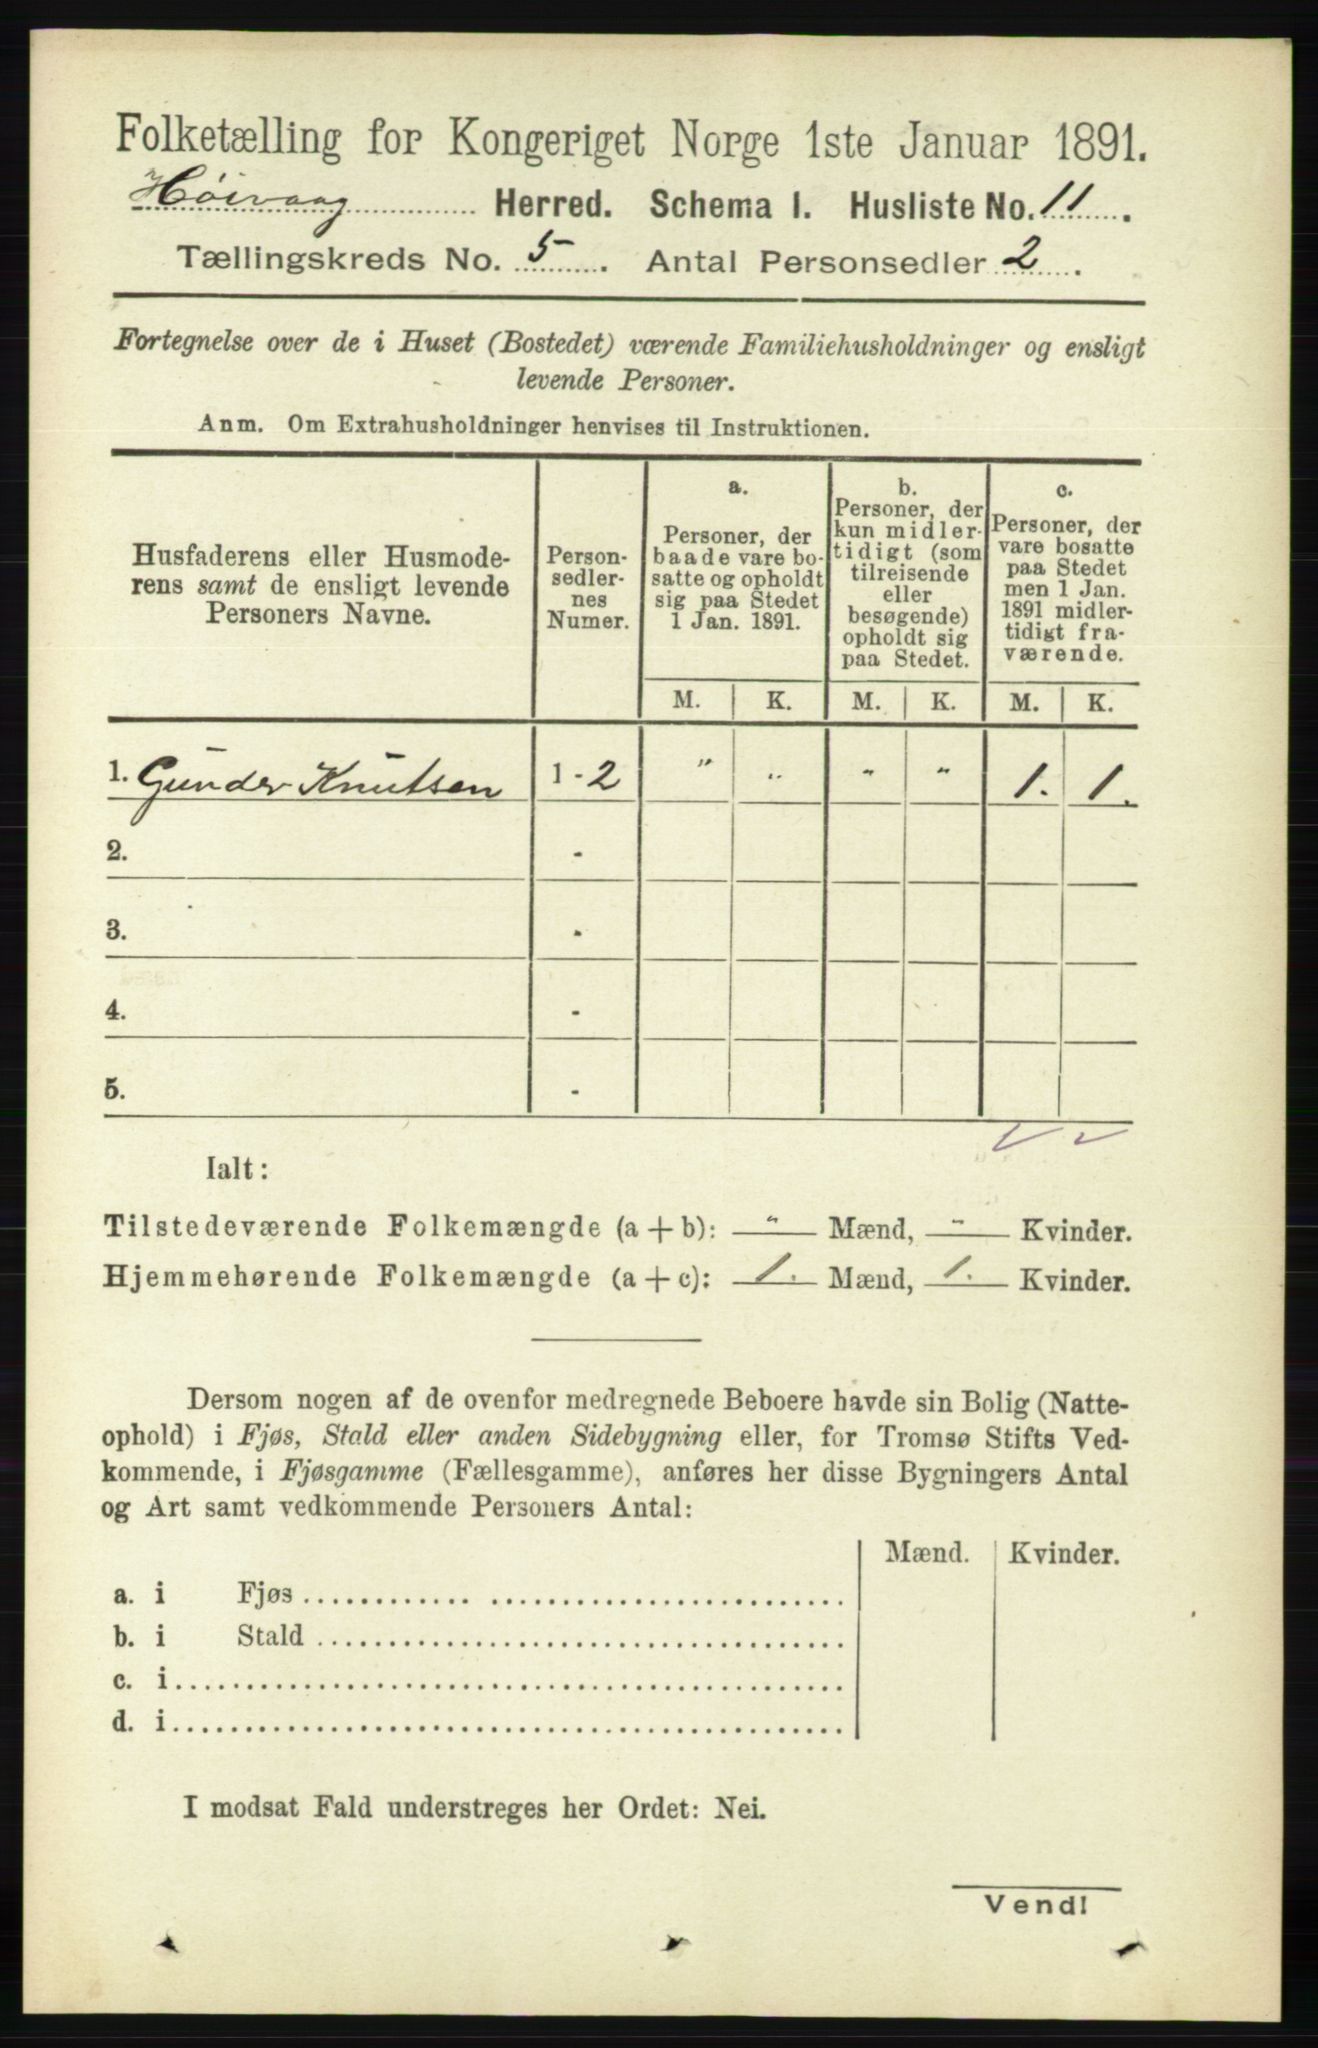 Folketælling for Kongeriget Norge 1ste Januar 1891.
Høivaag Herred. Schema I. Husliste No. 11.
Tællingskreds No. 5. Antal Personsedler 2.
Fortegnelse over de i Huset (Bostedet) værende Familiehusholdninger og ensligt
levende Personer.
Anm. Om Extrahusholdninger henvises til Instruktionen.
Husfaderens eller Husmode-
rens samt de ensligt levende
Personers Navne.
Person-
sedler-
nes
Numer.
a.
Personer, der
baade vare bo-
satte og opholdt
sig paa Stedet
1 Jan. 1891.
b.
Personer, der
kun midler-
tidigt (som
tilreisende
eller
besøgende)
opholdt sig
paa Stedet.
c.
Personer, der
vare bosatte
paa Stedet
men 1 Jan.
1891 midler-
tidigt fra-
værende.
M. K. M. K. M. K.
1. Gunder Knutsen 1 - 2 " " " " 1. 1.
2. -
3. -
4. -
5. -
Ialt:
Tilstedeværende Folkemængde (a + b): " Mænd, " Kvinder.
Hjemmehørende Folkemængde (a + c): 1. Mænd, 1. Kvinder.
Dersom nogen af de ovenfor medregnede Beboere havde sin Bolig (Natte-
ophold) i Fjøs, Stald eller anden Sidebygning eller, for Tromsø Stifts Ved-
kommende, i Fjøsgamme (Fællesgamme), anføres her disse Bygningers Antal
og Art samt vedkommende Personers Antal:
Mænd. Kvinder.
a. i Fjøs
b. i Stald
c. i
d. i
I modsat Fald understreges her Ordet: Nei.
Vend!